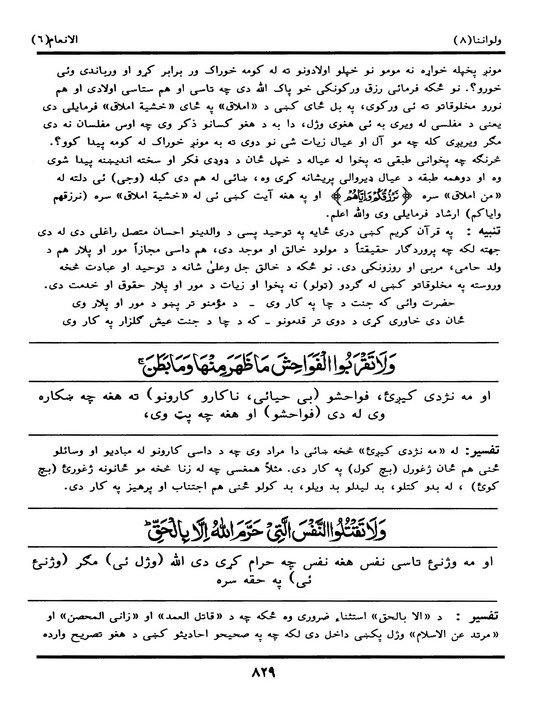 ولواننا(۸) الانعام(٦)
مونږ پخپله خواړه نه مومو نو خپلو اولادونو ته له کومه خوراک ور برابر کړو او ورباندي وئي
خورو؟. نو ځکه فرمائي رزق ورکونکی خو پاک الله دی چه تاسی او هم ستاسی اولادی او هم
نورو مخلوقاتو ته ئی ورکوي، په بل ځای کښی د «املاق» په ځای «خشیة املاق» فرمایلی دی
یعنی د مفلسی له ویری به ئی هغوی وژل، دا به د هغو کسانو ذکر وی چه اوس مفلسان نه دی
مګر ویریږی کله چه مو آل او عیال زیات شی نو دوی ته به مونږ خوراک له کومه پیدا کوو؟.
څرنګه چه پخوانی طبقی ته پخوا له عیاله د خپل ځان د ډوډی فکر او سخته اندیښنه پیدا شوی
وه او دوهمه طبقه د عیال ډیروالی پریشانه کړی وه، ښائی له هم دی کبله (وجی) ئی دلته له
«من املاق» سره ﴿ نَرْزُقُكُمْ وَاِيَّاهُمْ ﴾ او په هغه آیت کښی ئی له «خشیة املاق» سره (نرزقهم
وایاکم) ارشاد فرمایلی وی والله اعلم.
تنبیه : په قرآن کریم کښی دری ځایه په توحید پسی د والدینو احسان متصل راغلی دی له دی
جهته لکه چه پروردګار حقیقتاً د مولود خالق او موجد دی، هم داسی مجازاً مور او پلار هم د
ولد حامی، مربی او روزونکی دی. نو ځکه د خالق جل وعلیٰ شانه د توحید او عبادت څخه
وروسته په مخلوقاتو کښی له ګردو (تولو) نه پخوا او زیات د مور او پلار حقوق او خدمت دی.
حضرت وائی که جنت د چا په کار وی – د مؤمنو تر پښو د مور او پلار وی
ځان دی خاوری کړی د دوی تر قدمونو – که د چا د جنت عیش ګلزار په کار وی
وَلَا تَقْرَبُوا الْفَوَاحِشَ مَا ظَهَرَ مِنْهَا وَمَا بَطَنَ ۚ
او مه نژدی کیږئ، فواحشو (بی حیائی، ناکارو کارونو) ته هغه چه ښکاره
وی له دی (فواحشو) او هغه چه پټ وی،
تفسیر: له «مه نژدی کیږئ» څخه ښائی دا مراد وی چه د داسی کارونو له مبادیو او وسائلو
څنی هم ځان ژغورل (بچ کول) په کار دی. مثلاً همغسی چه له زنا څخه مو ځانونه ژغورئ (بچ
کوئ) ، له بدو کتلو، بد لیدلو بد ویلو، بد کولو څنی هم اجتناب او پرهیز په کار دی.
وَلَا تَقْتُلُوا النَّفْسَ الَّتِىْ حَرَّمَ اللّٰهُ اِلَّا بِالْحَقِّ ؕ
او مه وژنئ تاسی نفس هغه نفس چه حرام کړی دی الله (وژل ئی) مګر (وژنئ
ئی) په حقه سره
تفسیر : د «الا بالحق» استثناء ضروری وه ځکه چه د «قاتل العمد» او «زانی المحصن» او
«مرتد عن الاسلام» وژل پکښی داخل دی لکه چه په صحیحو احادیثو کښی د هغو تصریح وارده
۸۲۹